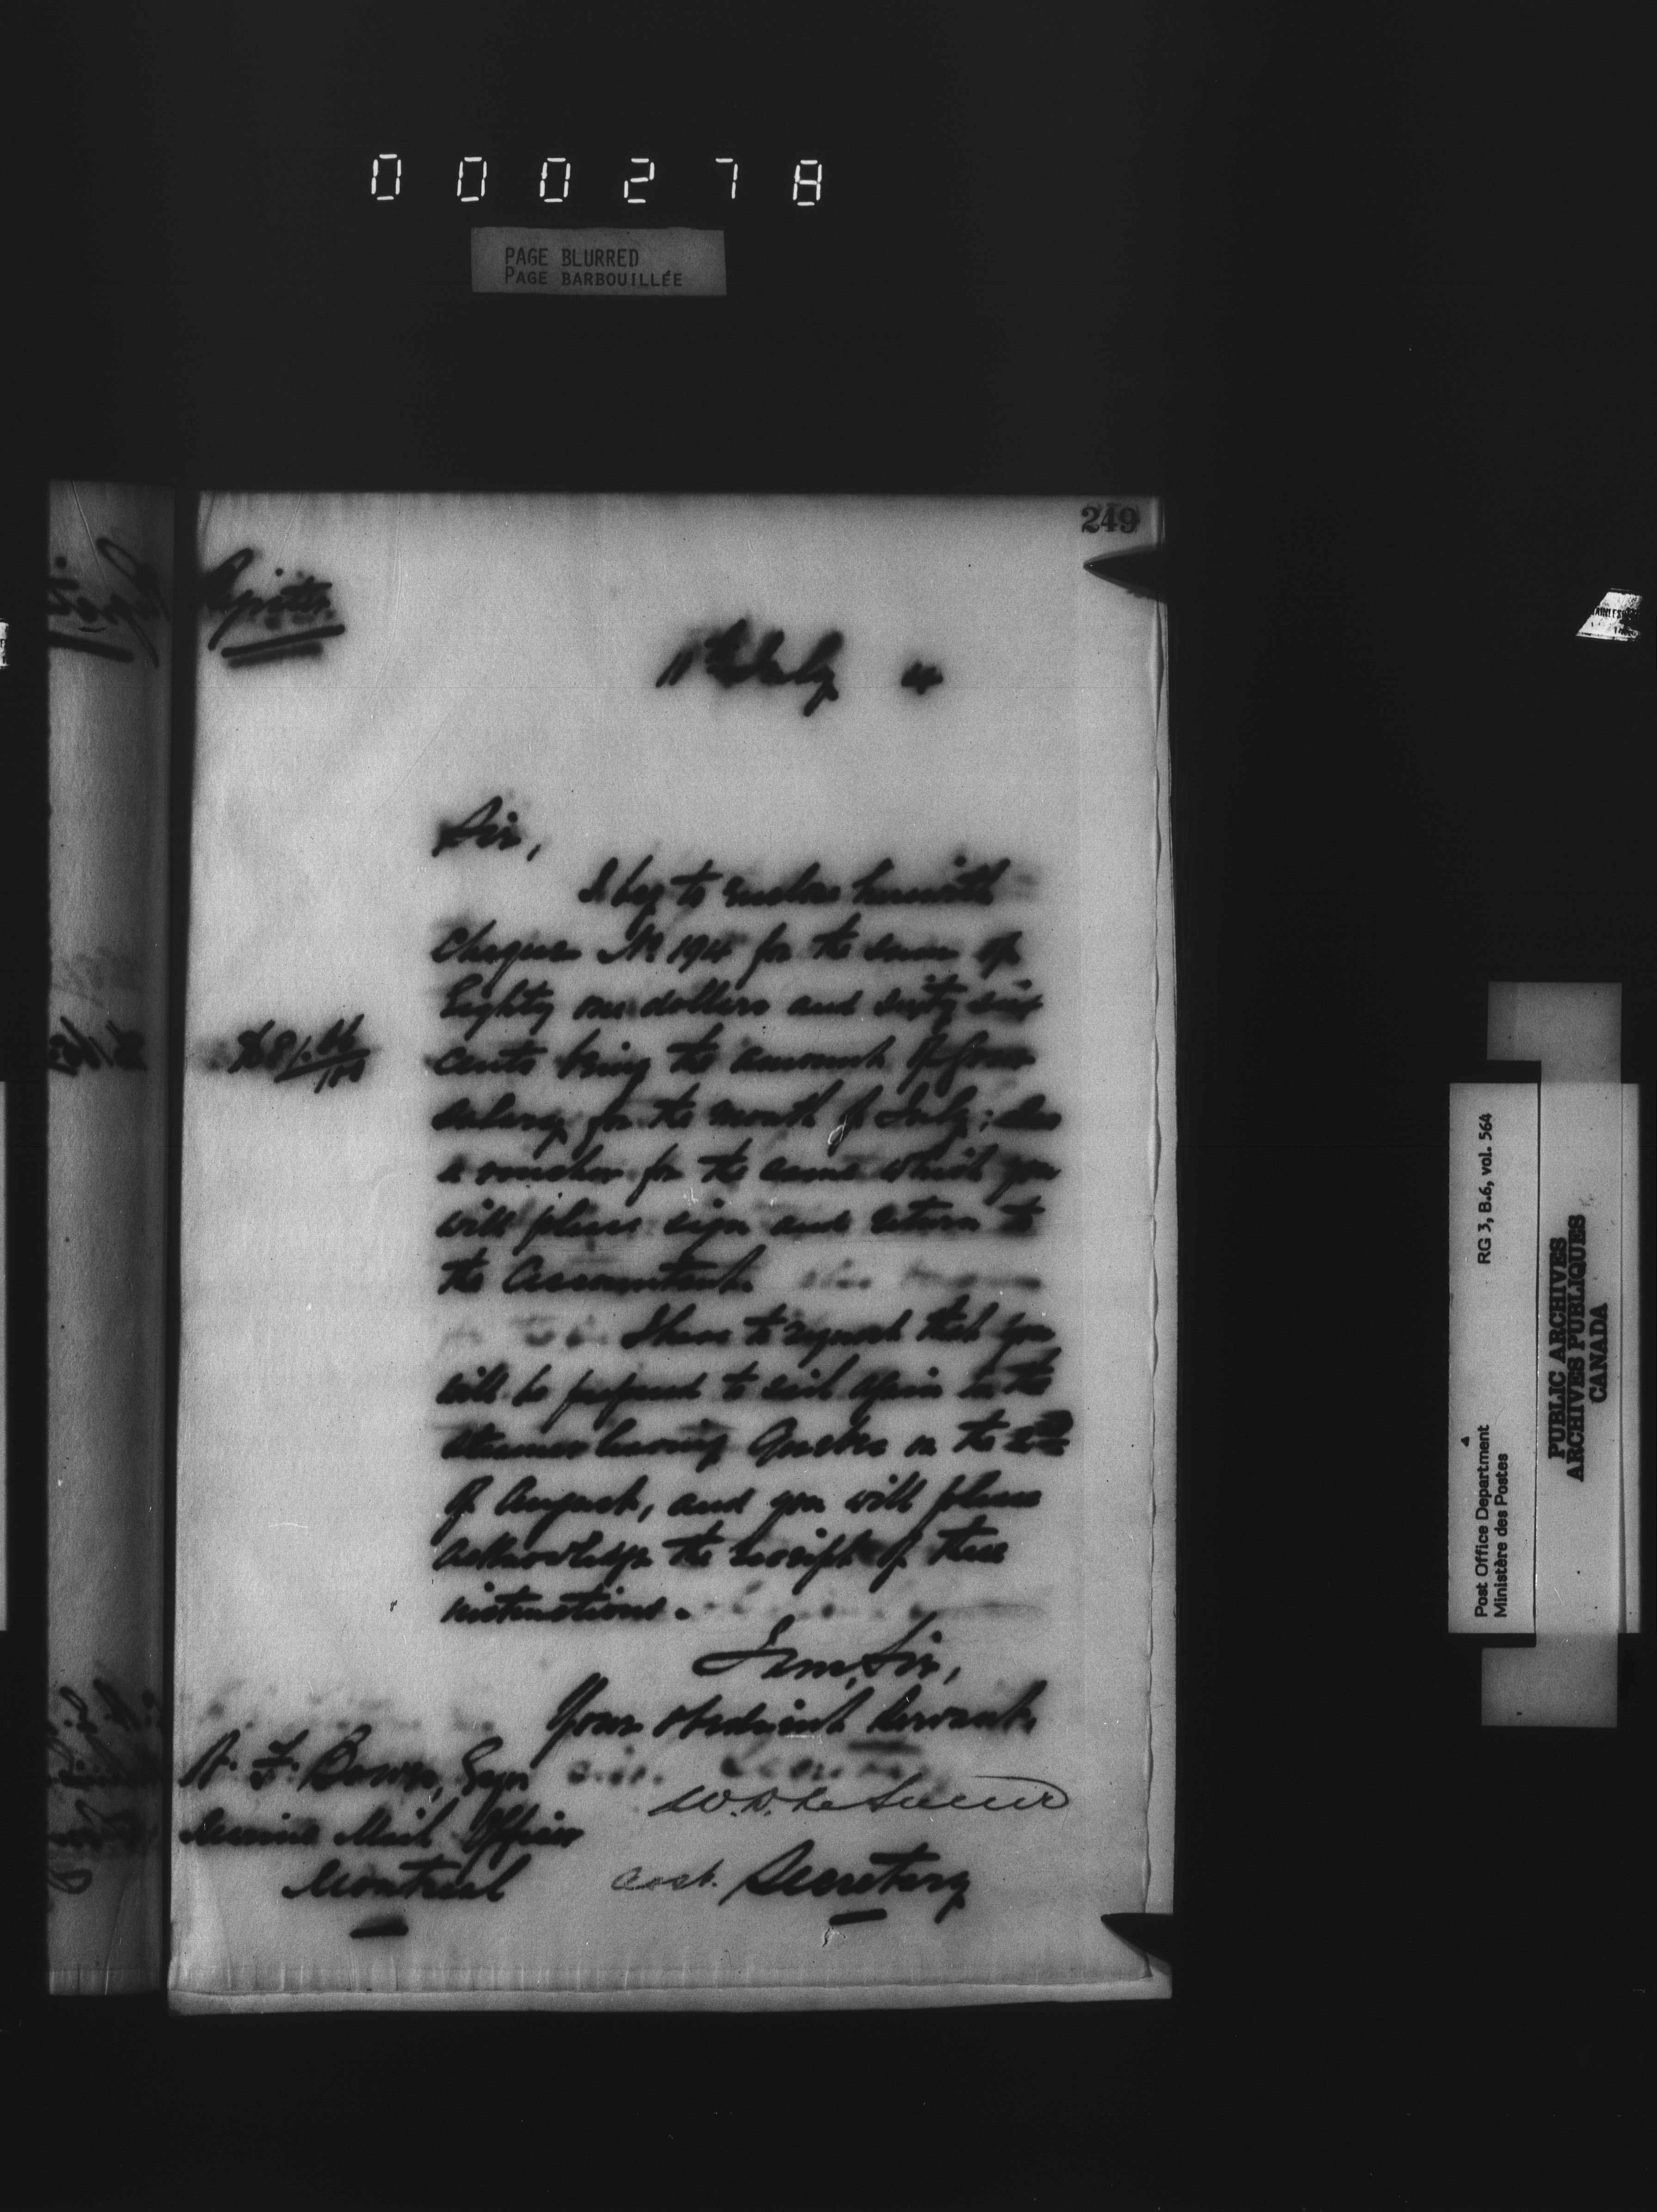 000278
PAGE BLURRED
PAGE BARBOUILLÉE
249
Register
11th July
Sir,
I beg to enclose herewith
Cheque No 194 for the sum of
Eighty one dollars and sixty six
$81.66/100
cents being the amount of your
salary for the month of July; also
a voucher for the same which you
will please sign and return to
the Accountant.
I have to request that you
will be prepared to sail again in the
steamer leaving Quebec on the
of August, and you will please
acknowledge the receipt of these
instructions.
I am, Sir,
Your obedient Servant,
W. D. LeSueur
Asst. Secretary
F. Bowen, Esqr
Marine Mail Officer
Montreal
Post Office Department
Ministère des Postes
RG 3, B.6, vol. 564
PUBLIC ARCHIVES
ARCHIVES PUBLIQUES
CANADA